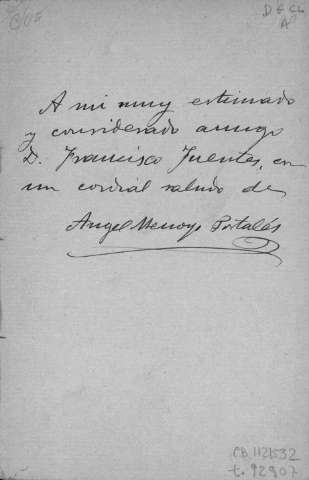 D E CL
A
A mi muy estimado
y considerado amigo
D. Francisco Fuentes, en
un cordial saludo de
Angel Menoyo Portalés
CB 1121532
t. 92907